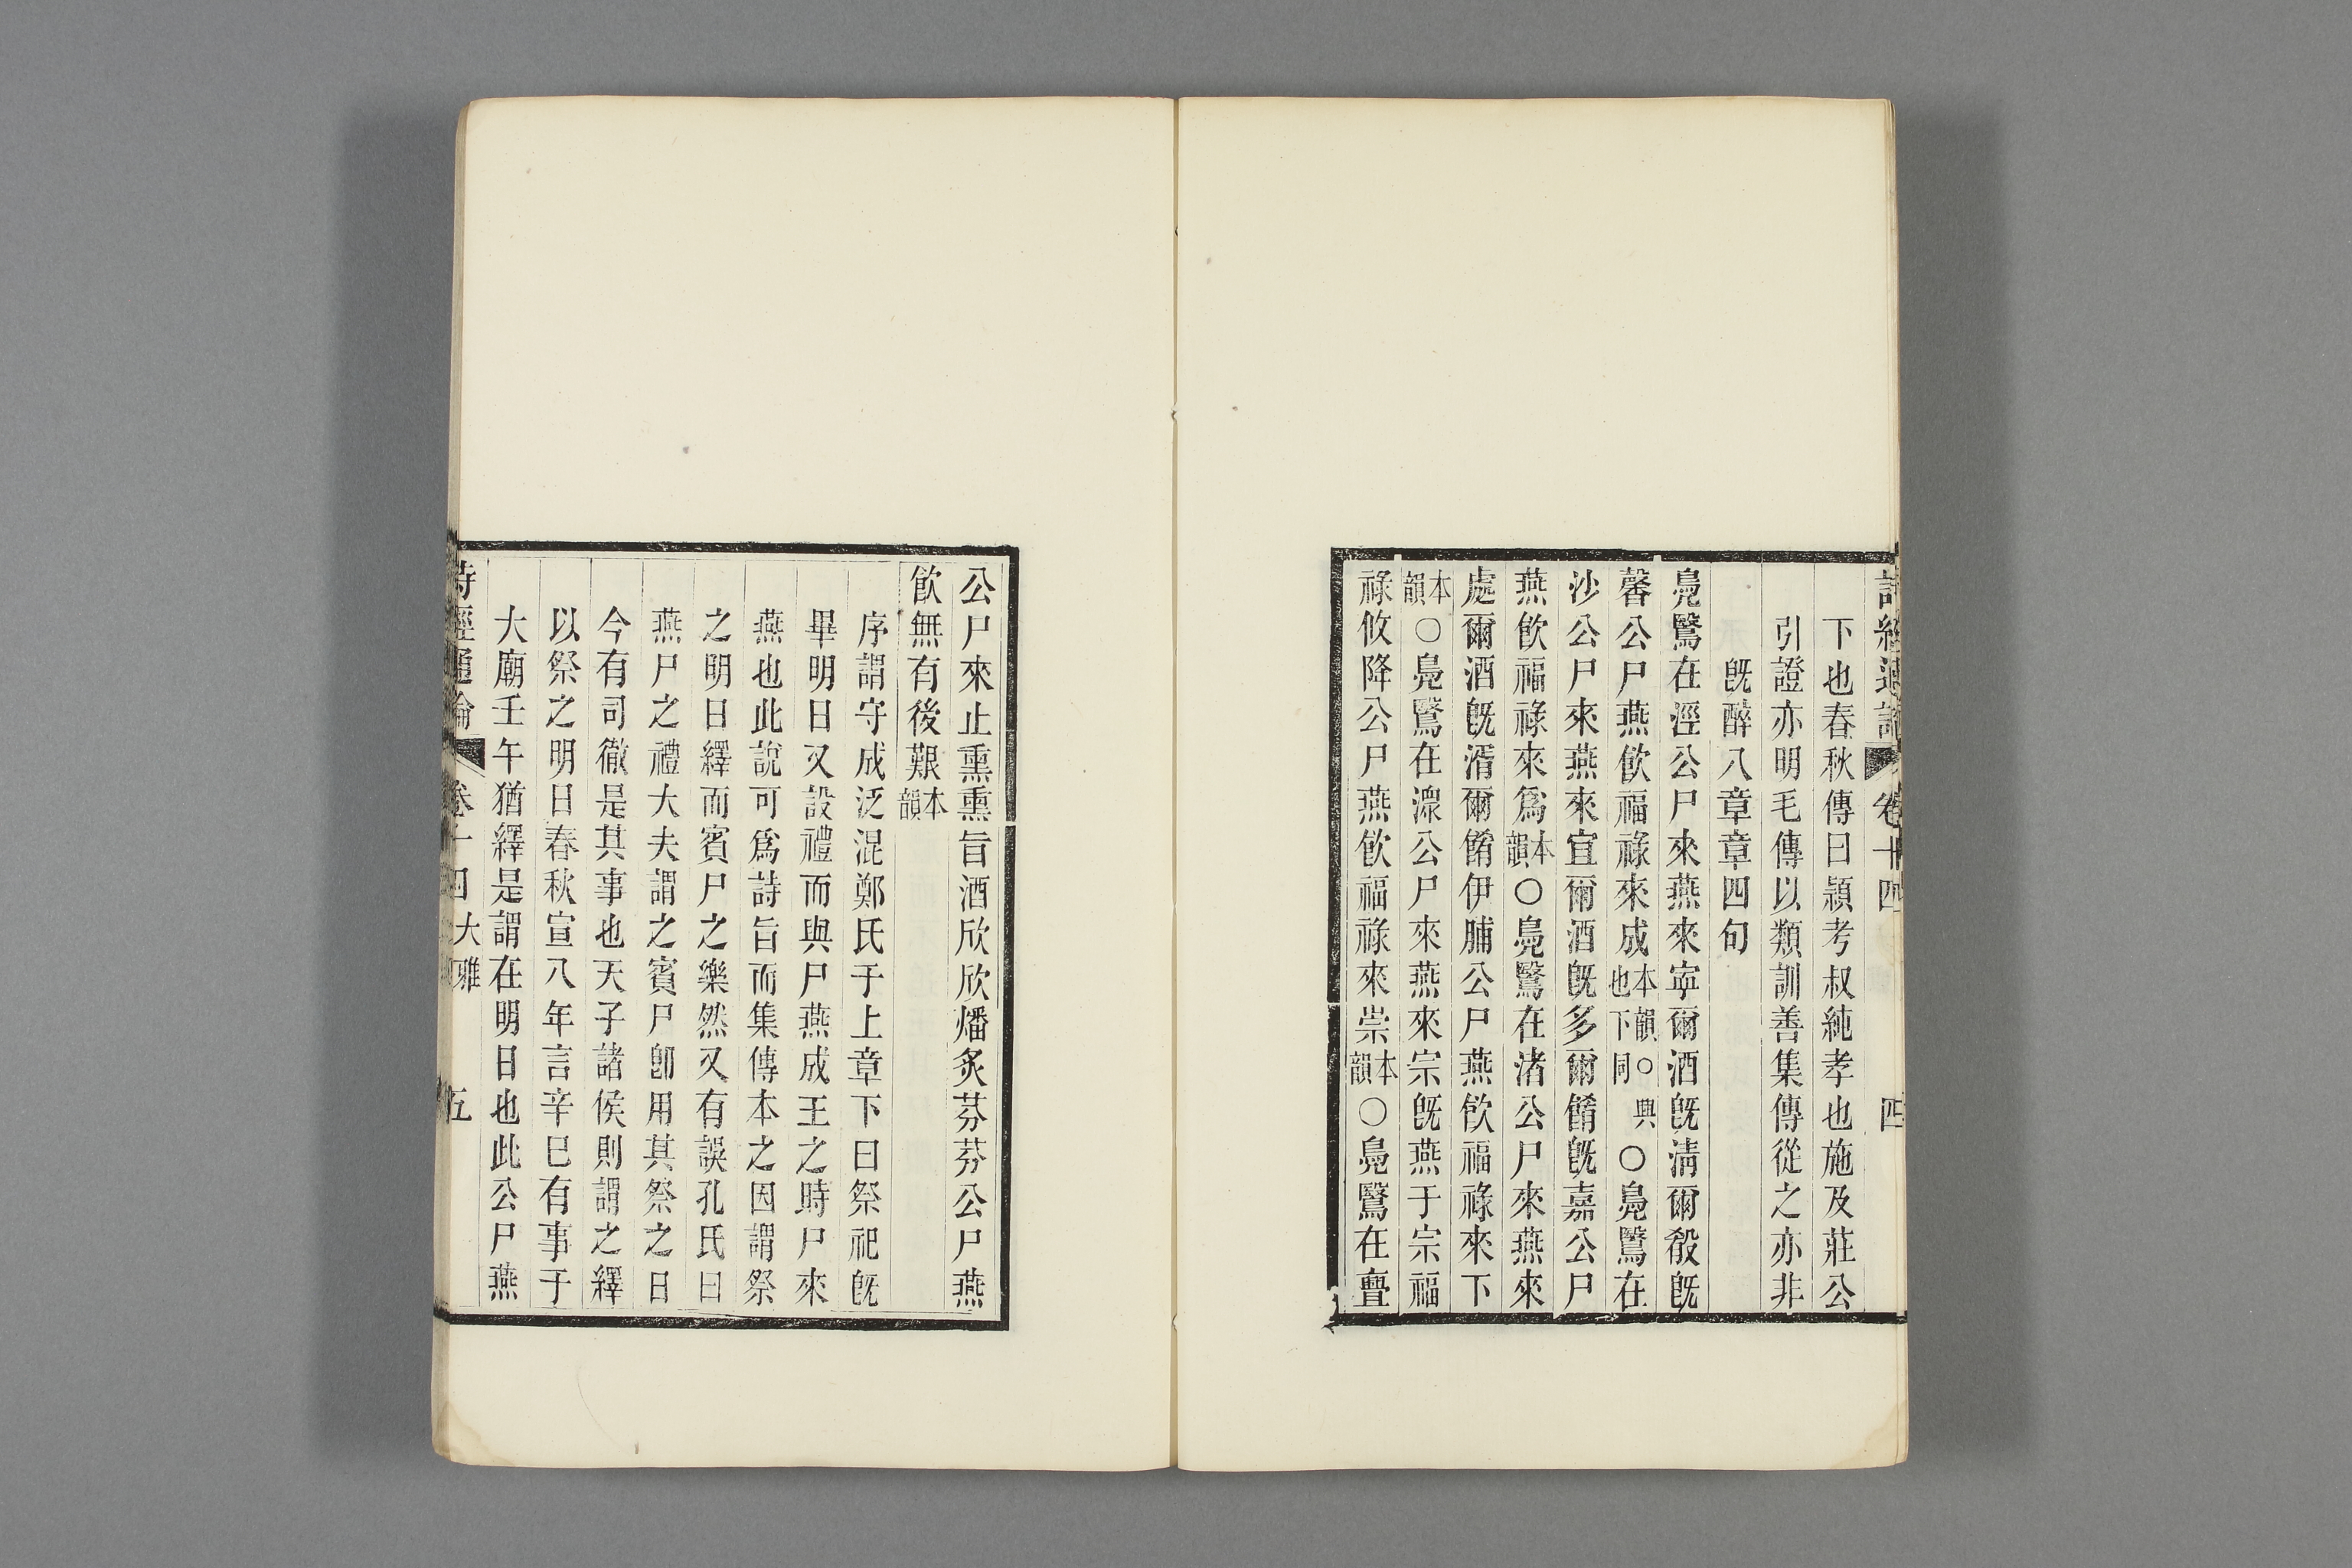 詩經通論 卷十四 四
下也春秋傳曰潁考叔純孝也施及莊公
引證亦明毛傳以類訓善集傳從之亦非
旣醉八章章四句
鳧鷖在涇公尸來燕來寧爾酒旣清爾殽旣
馨公尸燕飮福祿來成本韻○興也下同○鳧鷖在
沙公尸來燕來宜爾酒旣多爾餚旣嘉公尸
燕飮福祿來爲本韻○鳧鷖在渚公尸來燕來
處爾酒旣湑爾餚伊脯公尸燕飮福祿來下
本韻○鳧鷖在潀公尸來燕來宗旣燕于宗福
祿攸降公尸燕飮福祿來崇本韻○鳧鷖在亹
公尸來止熏熏旨酒欣欣燔炙芬芬公尸燕
飮無有後艱本韻
序謂守成泛混鄭氏于上章下曰祭祀旣
畢明日又設禮而與尸燕成王之時尸來
燕也此說可爲詩旨而集傳本之因謂祭
之明日繹而賓尸之樂然又有誤孔氏曰
燕尸之禮大夫謂之賓尸卽用其祭之日
今有司徹是其事也天子諸侯則謂之繹
以祭之明日春秋宣八年言辛巳有事于
大廟壬午猶繹是謂在明日也此公尸燕
詩經通論 卷十四 大雅 五